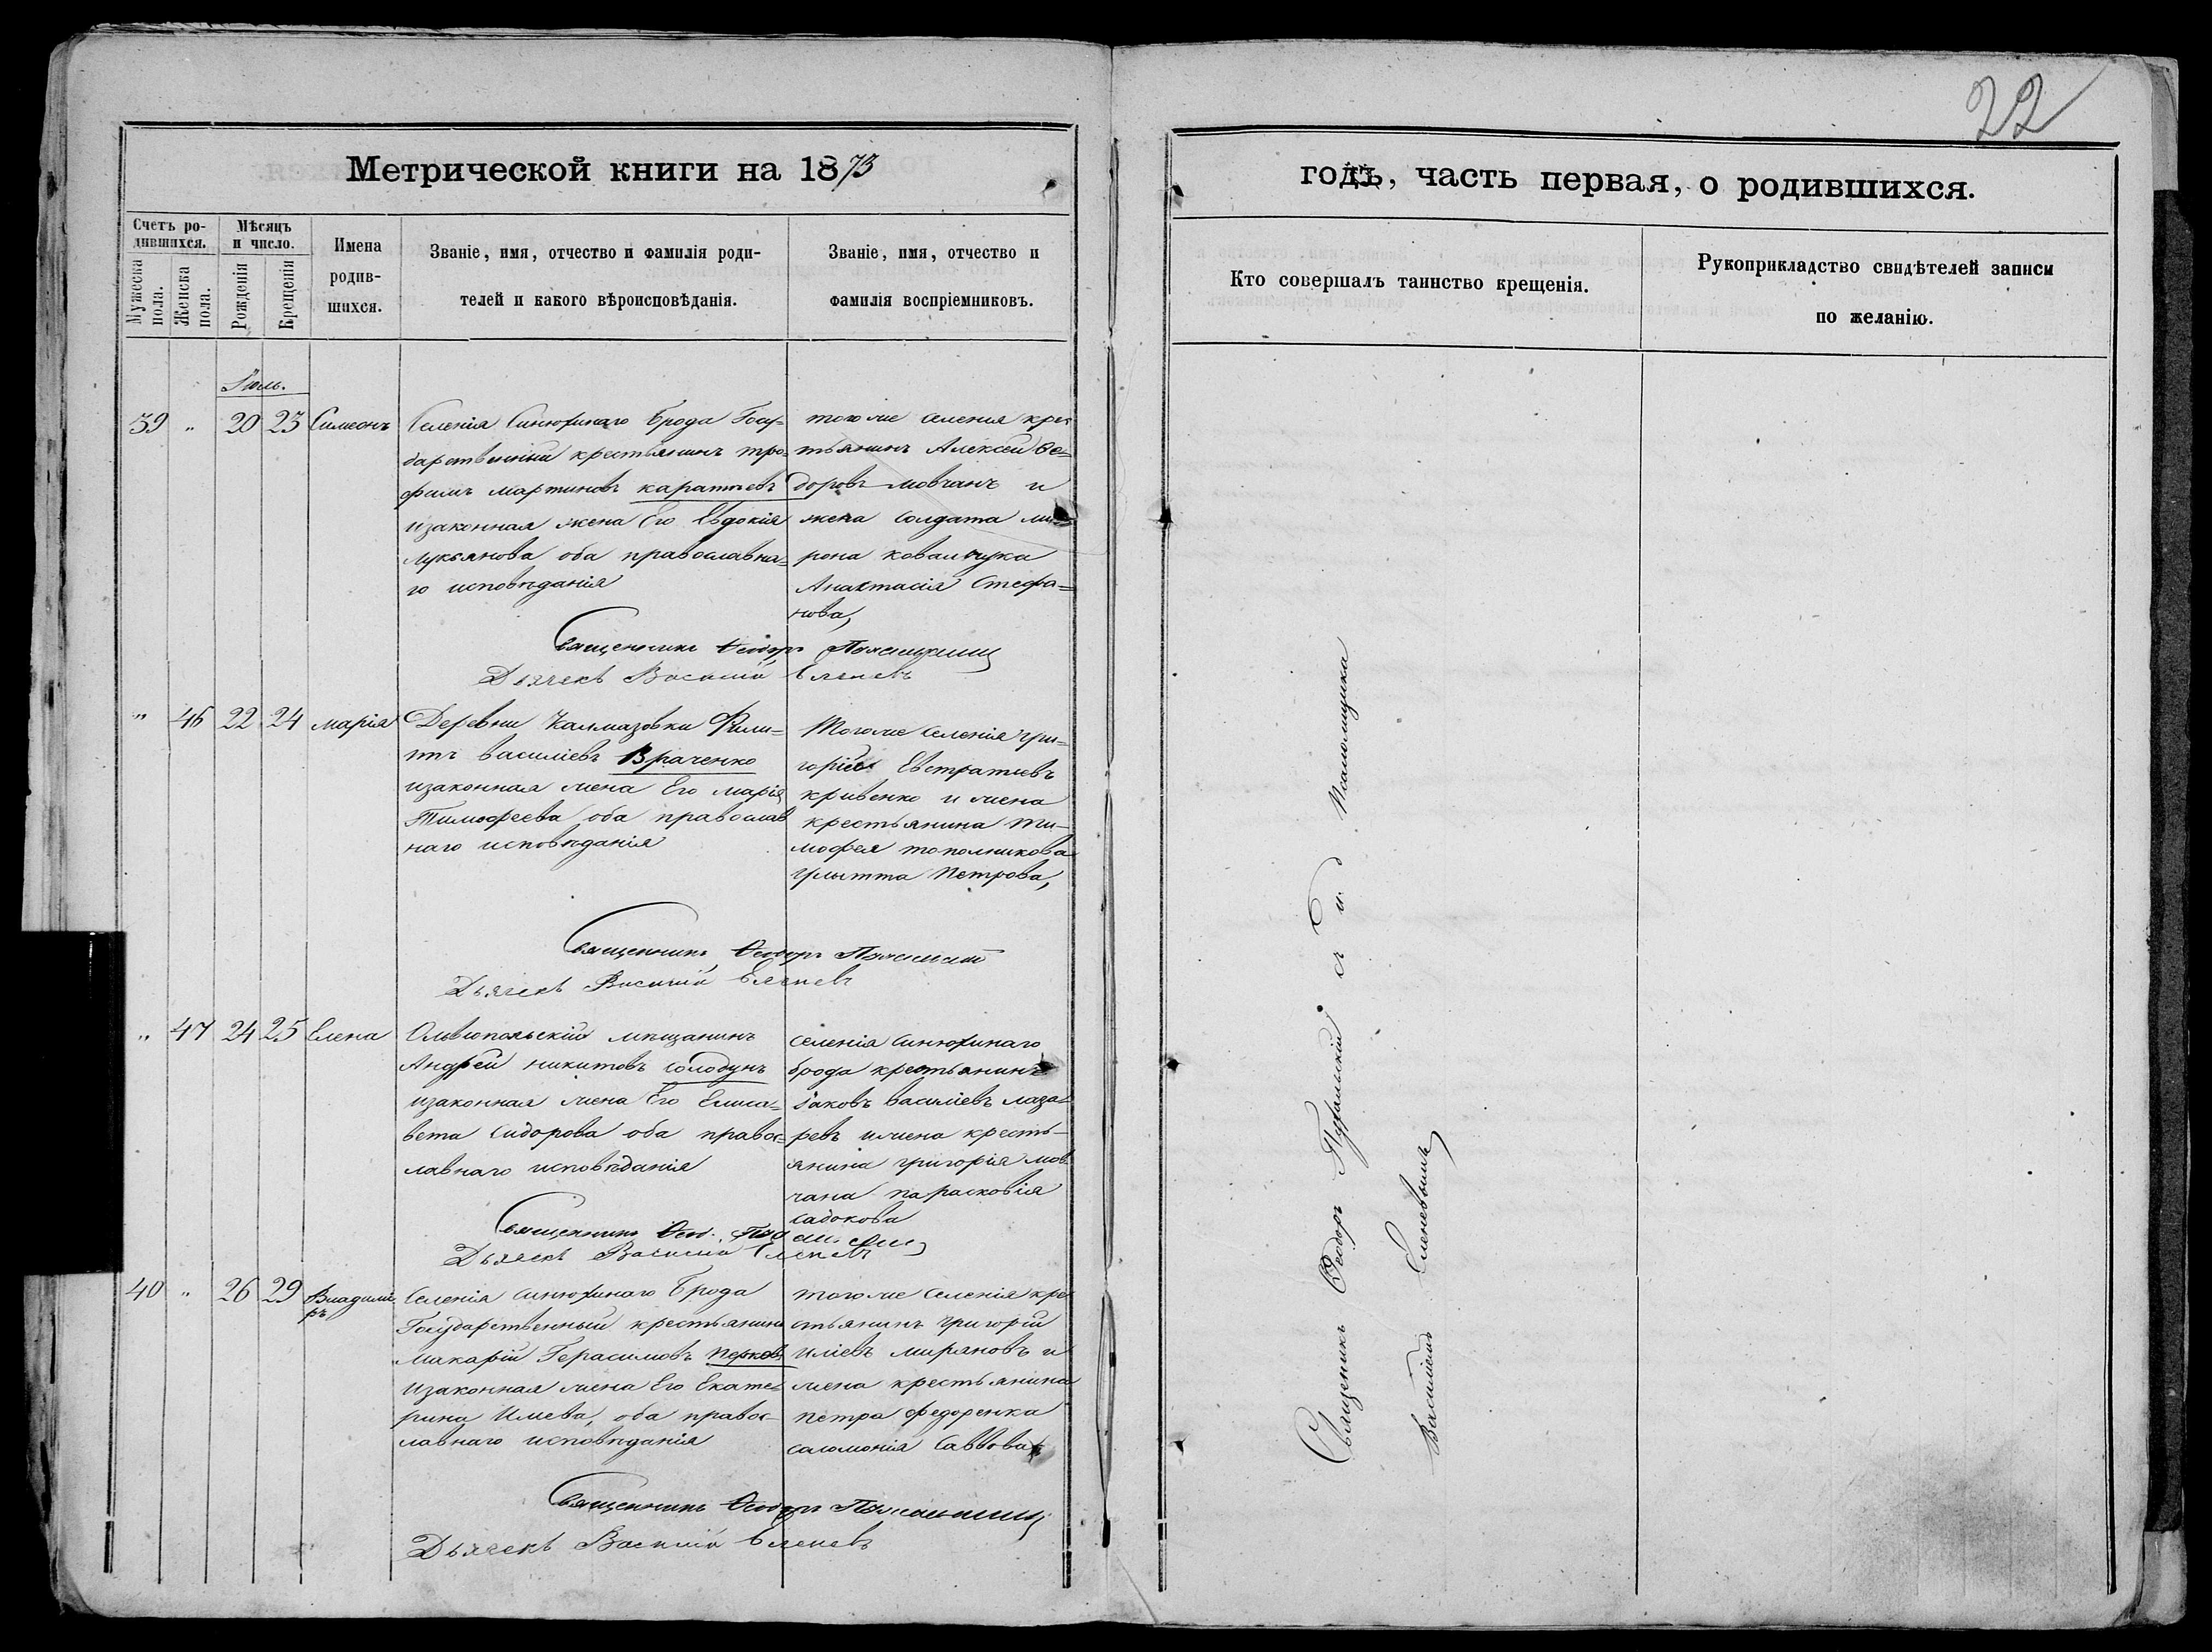 22
Метрической книги на 1873
годъ, часть первая, о родившихся.
Счетъ родившихся.
Мужеска пола.
Женска пола.
Мѣсяцъ и число.
Рожденія
Крещенія
Имена родившихся.
Званіе, имя, отчество и фамилія роди-
телей и какого вѣроисповѣданія.
Званіе, имя, отчество и
фамилія воспріемниковъ.
Кто совершалъ таинство крещенія.
Рукоприкладство свидѣтелей записи
по желанію.
Іюль.
39 " 20 23 Симеонъ
Селенія Синюхинаго Брода Госу=
дарственный крестьянинъ тро=
фимъ мартиновъ каратѣевъ
изаконная жена Его Евдокія
Лукьянова оба православна=
го исповѣданія
того же селенія крес
тьянинъ Алексѣй Ѳе=
доровъ мовчанъ и
жена Солдата ми=
рона ковальчука
Анастасія Стефа=
нова,
Священникъ Ѳеодоръ
Дьячекъ Василій Еленевъ
" 46 22 24 марія
Деревни Калмазовки Фили=
пъ василіевъ Враченко
изаконная жена Его марія
Тимофеева оба православ
наго исповѣданія
Тогоже селенія гри=
горій Евстратіевъ
кривенко и жена
крестьянина ти-
мофея тополникова
Петрова,
Священникъ Ѳеодоръ
Дьячекъ Василій Еленевъ
" 47 24 25 Елена
Ольвіопольскій мѣщанинъ
Андрей никитовъ солодунъ
изаконная жена Его Елиса=
вета Сидорова оба правос=
лавнаго исповѣданія
селенія синюхинаго
брода крестьянинъ
Іаковъ василіевъ лаза=
ревъ ижена кресть-
янина григорія мов
чана парасковія
Садокова
Священникъ Ѳеод.
Дьячекъ Василій Еленевъ
40 " 26 29 Владими
ръ
Селенія синюхинаго Брода
Государственный крестьянинъ
макарій Герасимовъ
изаконная жена Его Екате=
рина Илиева, оба правос-
лавнаго исповѣданія
тогоже селенія кре
стьянинъ григорій
иліевъ миряновъ и
жена крестьянина
петра федоренка
саломонія Саввова
Священникъ Ѳеодоръ
Дьячекъ Василій Еленевъ
Священникъ Ѳеодоръ съ
Василіемъ Еленевымъ